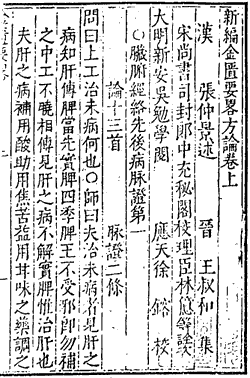 新編金匱要畧方論卷上
漢 張仲景述 晉 王叔和 集
宋尚書司封郎中充秘閣校理臣林億等詮次
大明新安吳勉學閱 應天徐 鎔 校
○臟腑經絡先後病脉證第一
論十三首 脉證二條
問曰上工治未病何也○師曰夫治未病者見肝之
病知肝傳脾當先實脾四季脾王不受邪卽勿補
之中工不曉相傳見肝之病不解實脾惟治肝也
夫肝之病補用酸助用焦苦益用甘味之藥調之